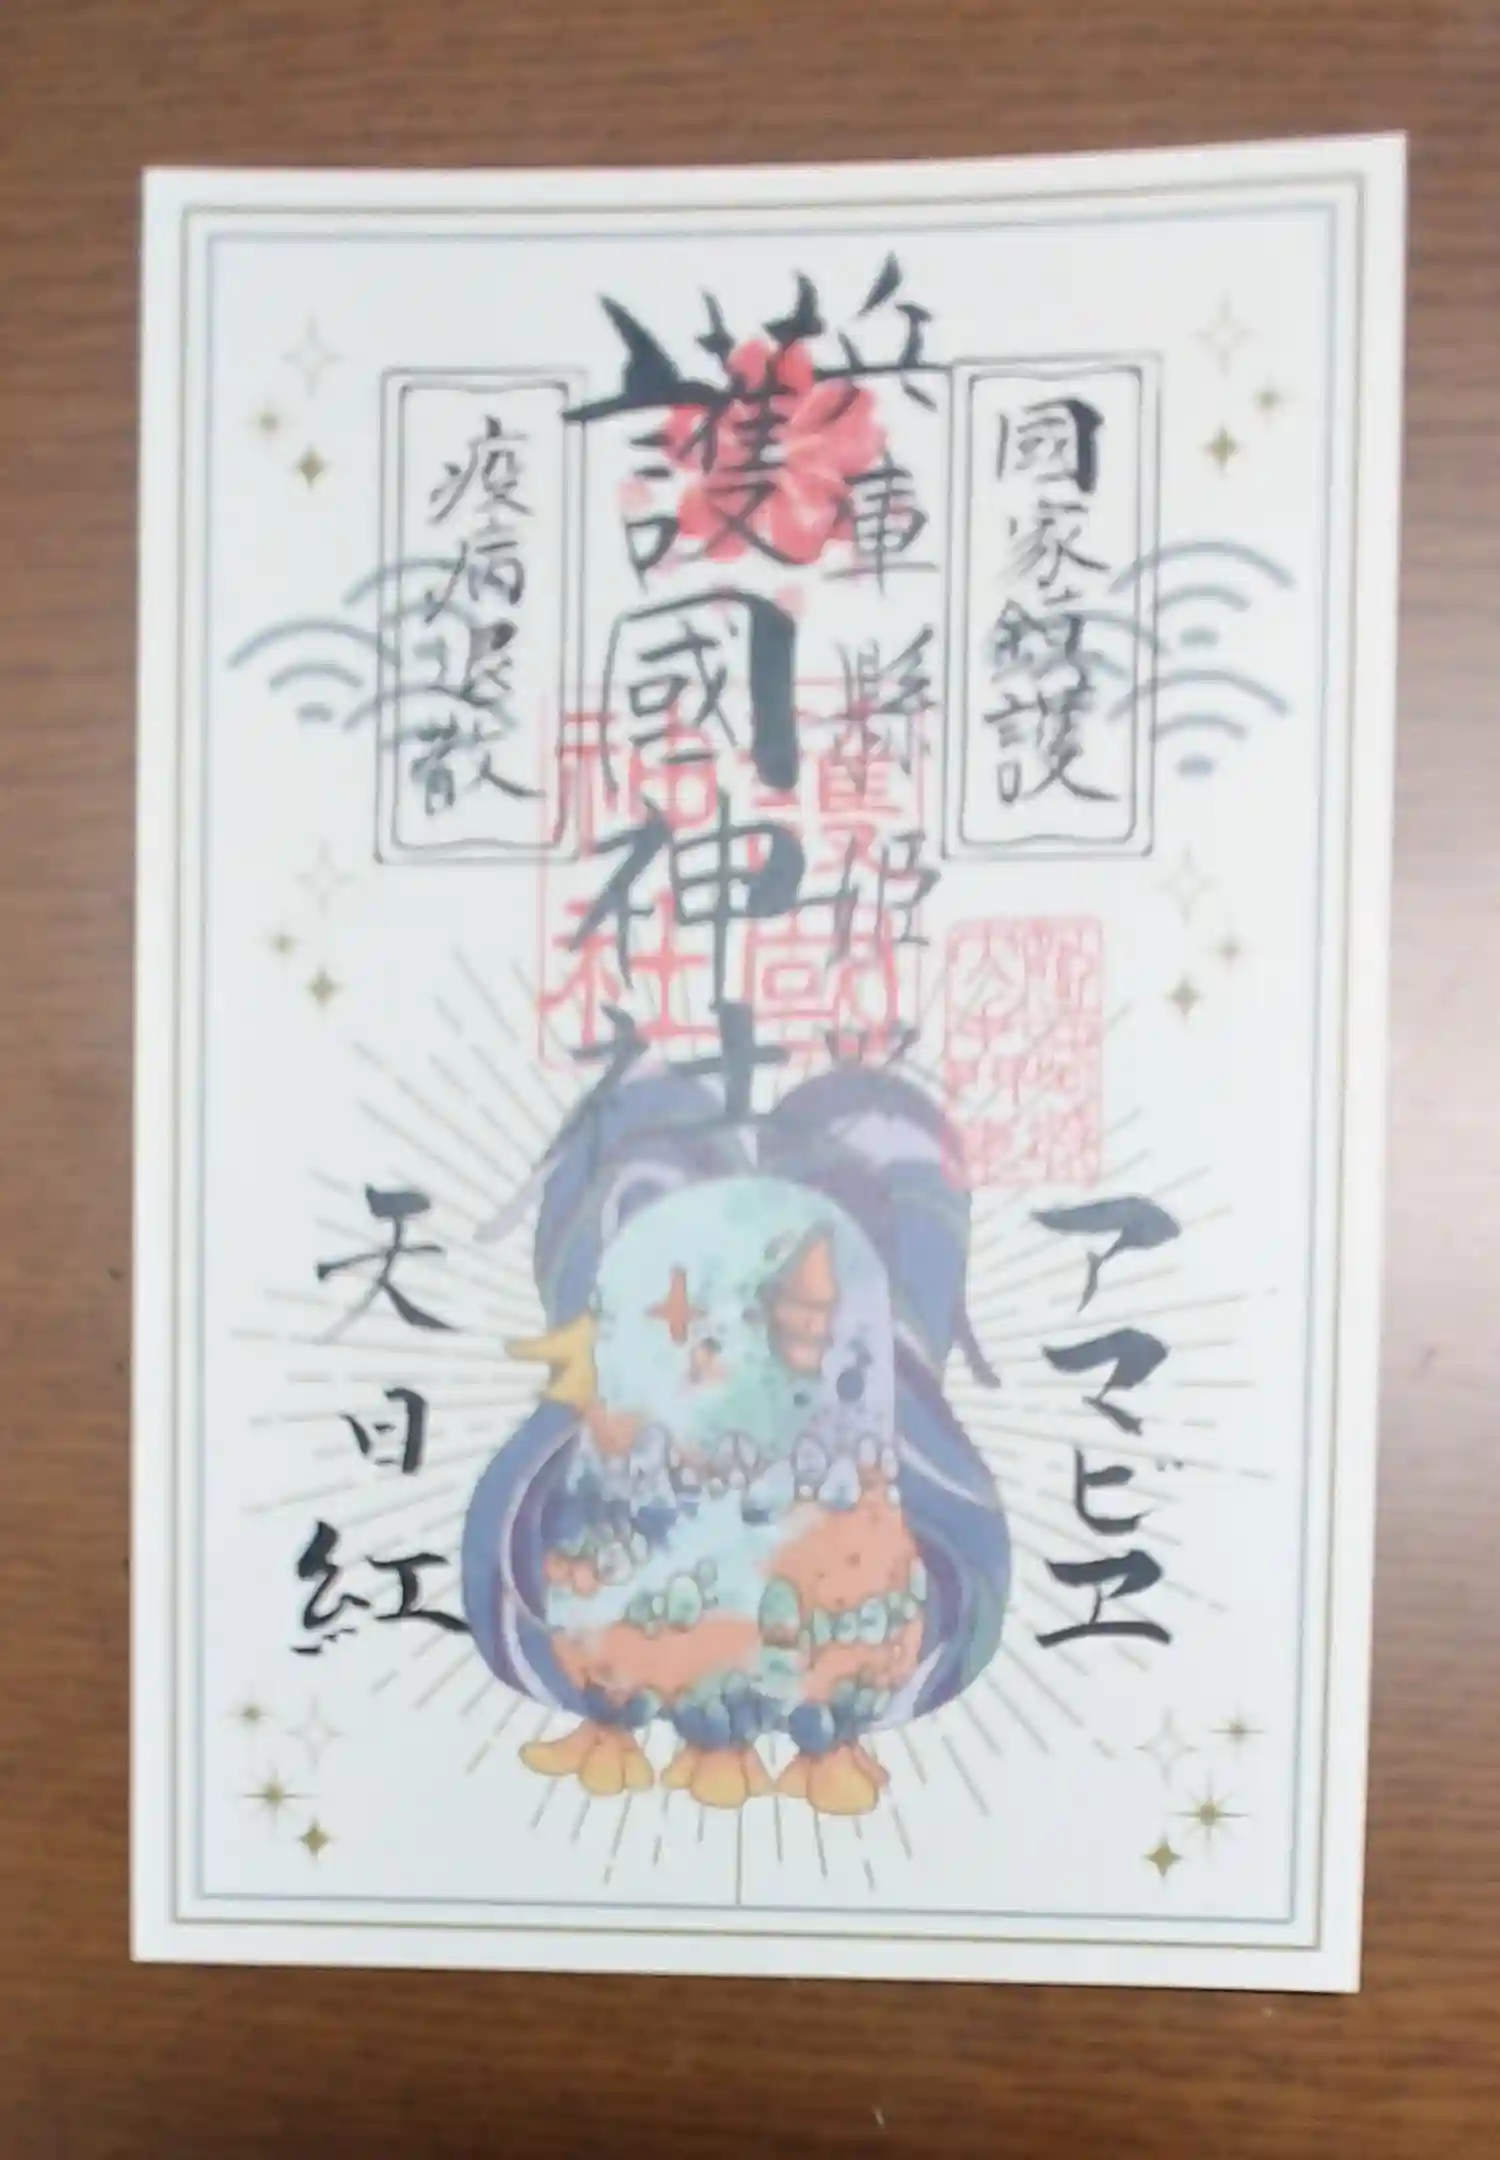 國家鎮護
兵庫縣姫路
護國神社
疫病退散
護國
神社
アマビヱ
天日紅